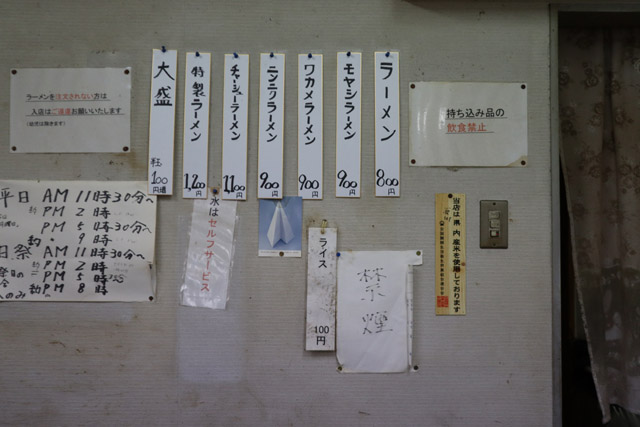 ラーメンを注文されない方は
入店はご遠慮お願いいたします
大盛
100円増
特製ラーメン
1,200円
チャーシューラーメン
1,100円
ニンニクラーメン
900円
ワカメラーメン
900円
モヤシラーメン
900円
ラーメン
800円
持ち込み品の
飲食禁止
平日 AM 11時30分〜
PM 2時
PM 5時30分〜
約 9時
日祭 AM 11時30分〜
約 PM 2時
PM 5時
約 PM 8時
水はセルフサービス
ライス
100円
禁煙
当店は県内産米を使用しております